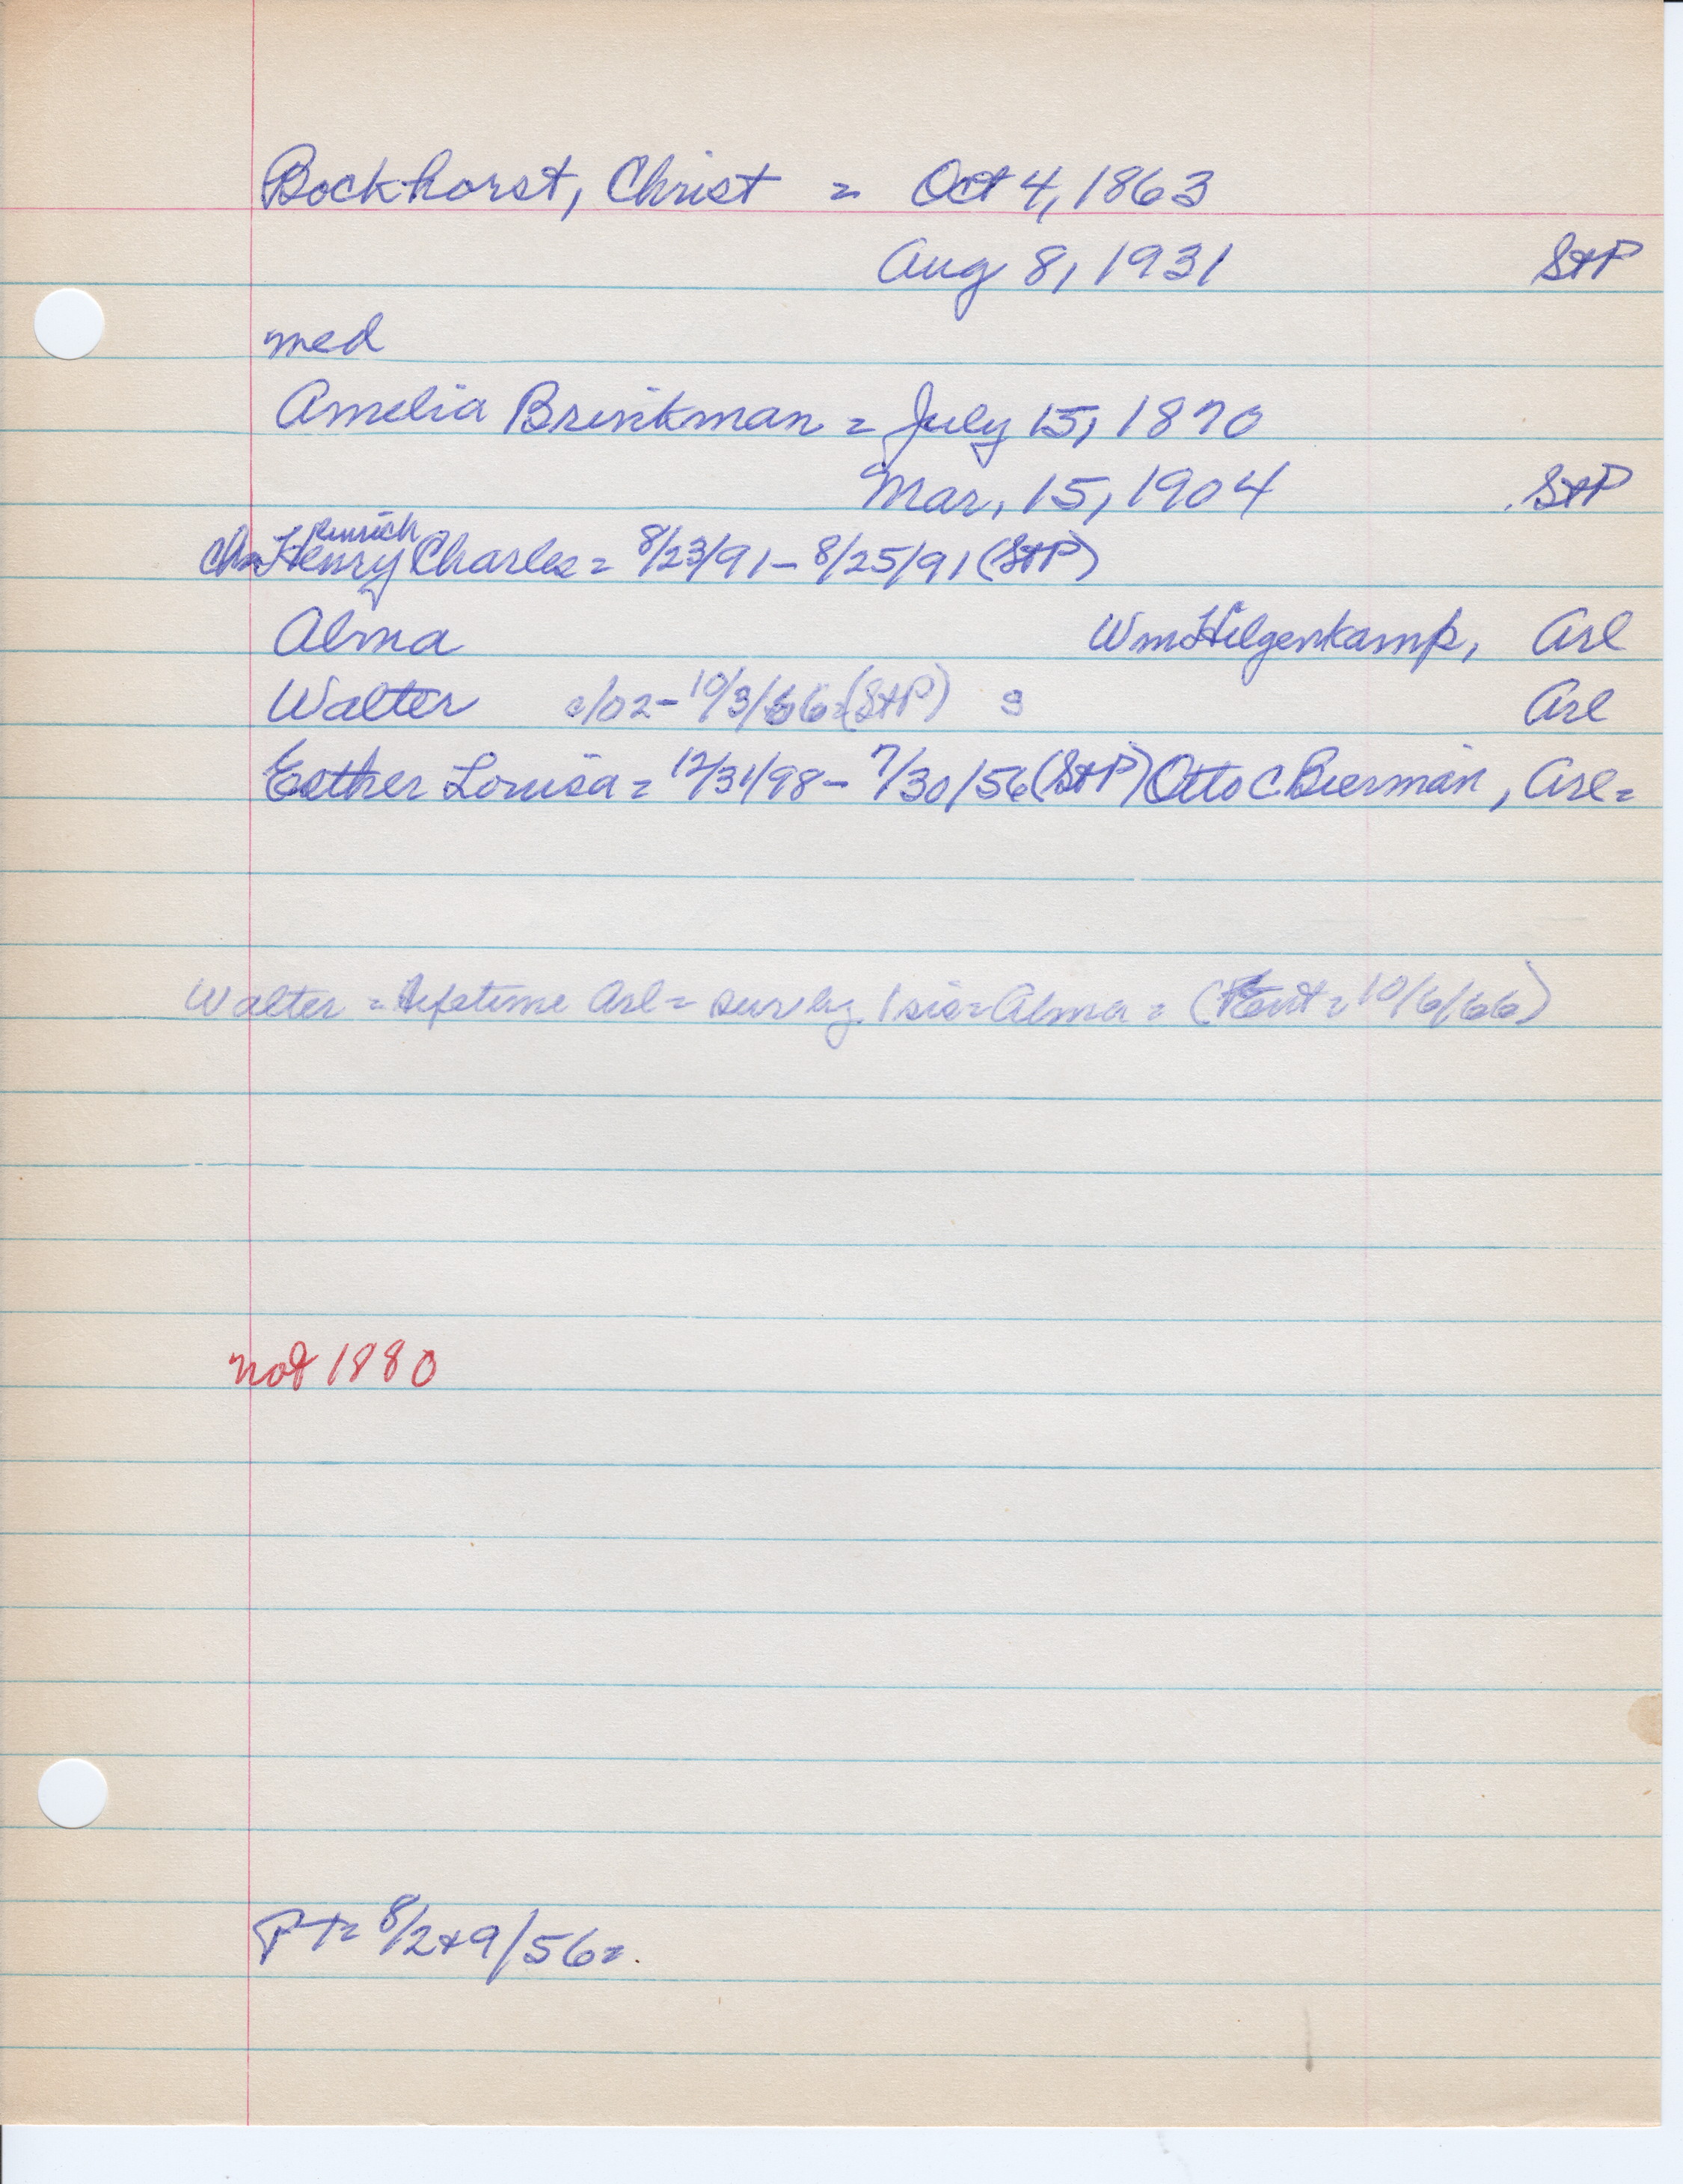 Bockhorst, Christ = Oct 4, 1863
Aug 8, 1931 St P
med
Amelia Brinkman = July 15, 1870
Mar, 15, 1904 St P
einrich
Chn Henry Charles = 8/23/91 - 8/25/91 (St P)
Alma Wm Hilgenkamp, Arl
Walter c/02 - 10/3/66 = (St P) s Arl
Esther Louisa = 12/31/98 - 7/30/56 (St P) Otto C Bierman, Arl =
Walter = lifetime Arl = surv by 1 sis = Alma = ( = 10/6/66)
not 1880
PT = 8/2+9/56 =